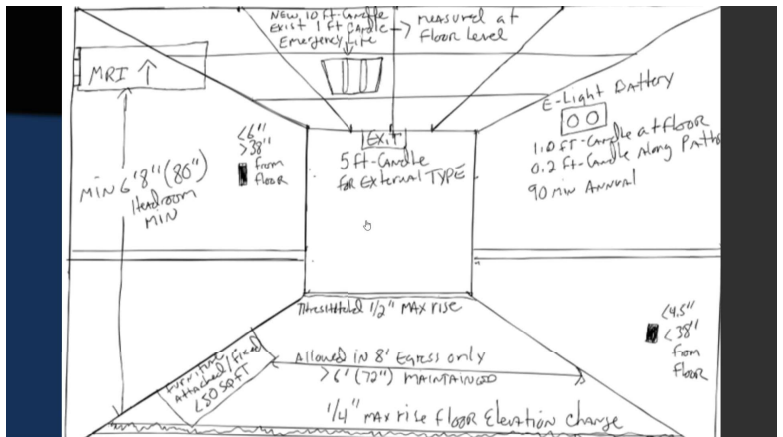 NEW 10 ft-Candle
Exist 1 ft Candle
Emergency Life
Measured at
Floor Level
MRI ↑
E-Light Battery
EXIT
5 ft-Candle
for External TYPE
1.0 ft-Candle at floor
0.2 ft-Candle Along Path
90 min Annual
<6"
>38"
from
floor
MIN 6'8" (80")
Headroom
MIN
Threshhold 1/2" MAX rise
<4.5"
<38"
from
Floor
Furniture
Attached/Fixed
<50 SqFT
Allowed in 8' Egress only
>6' (72") MAINTAINED
1/4" MAX rise Floor Elevation Change